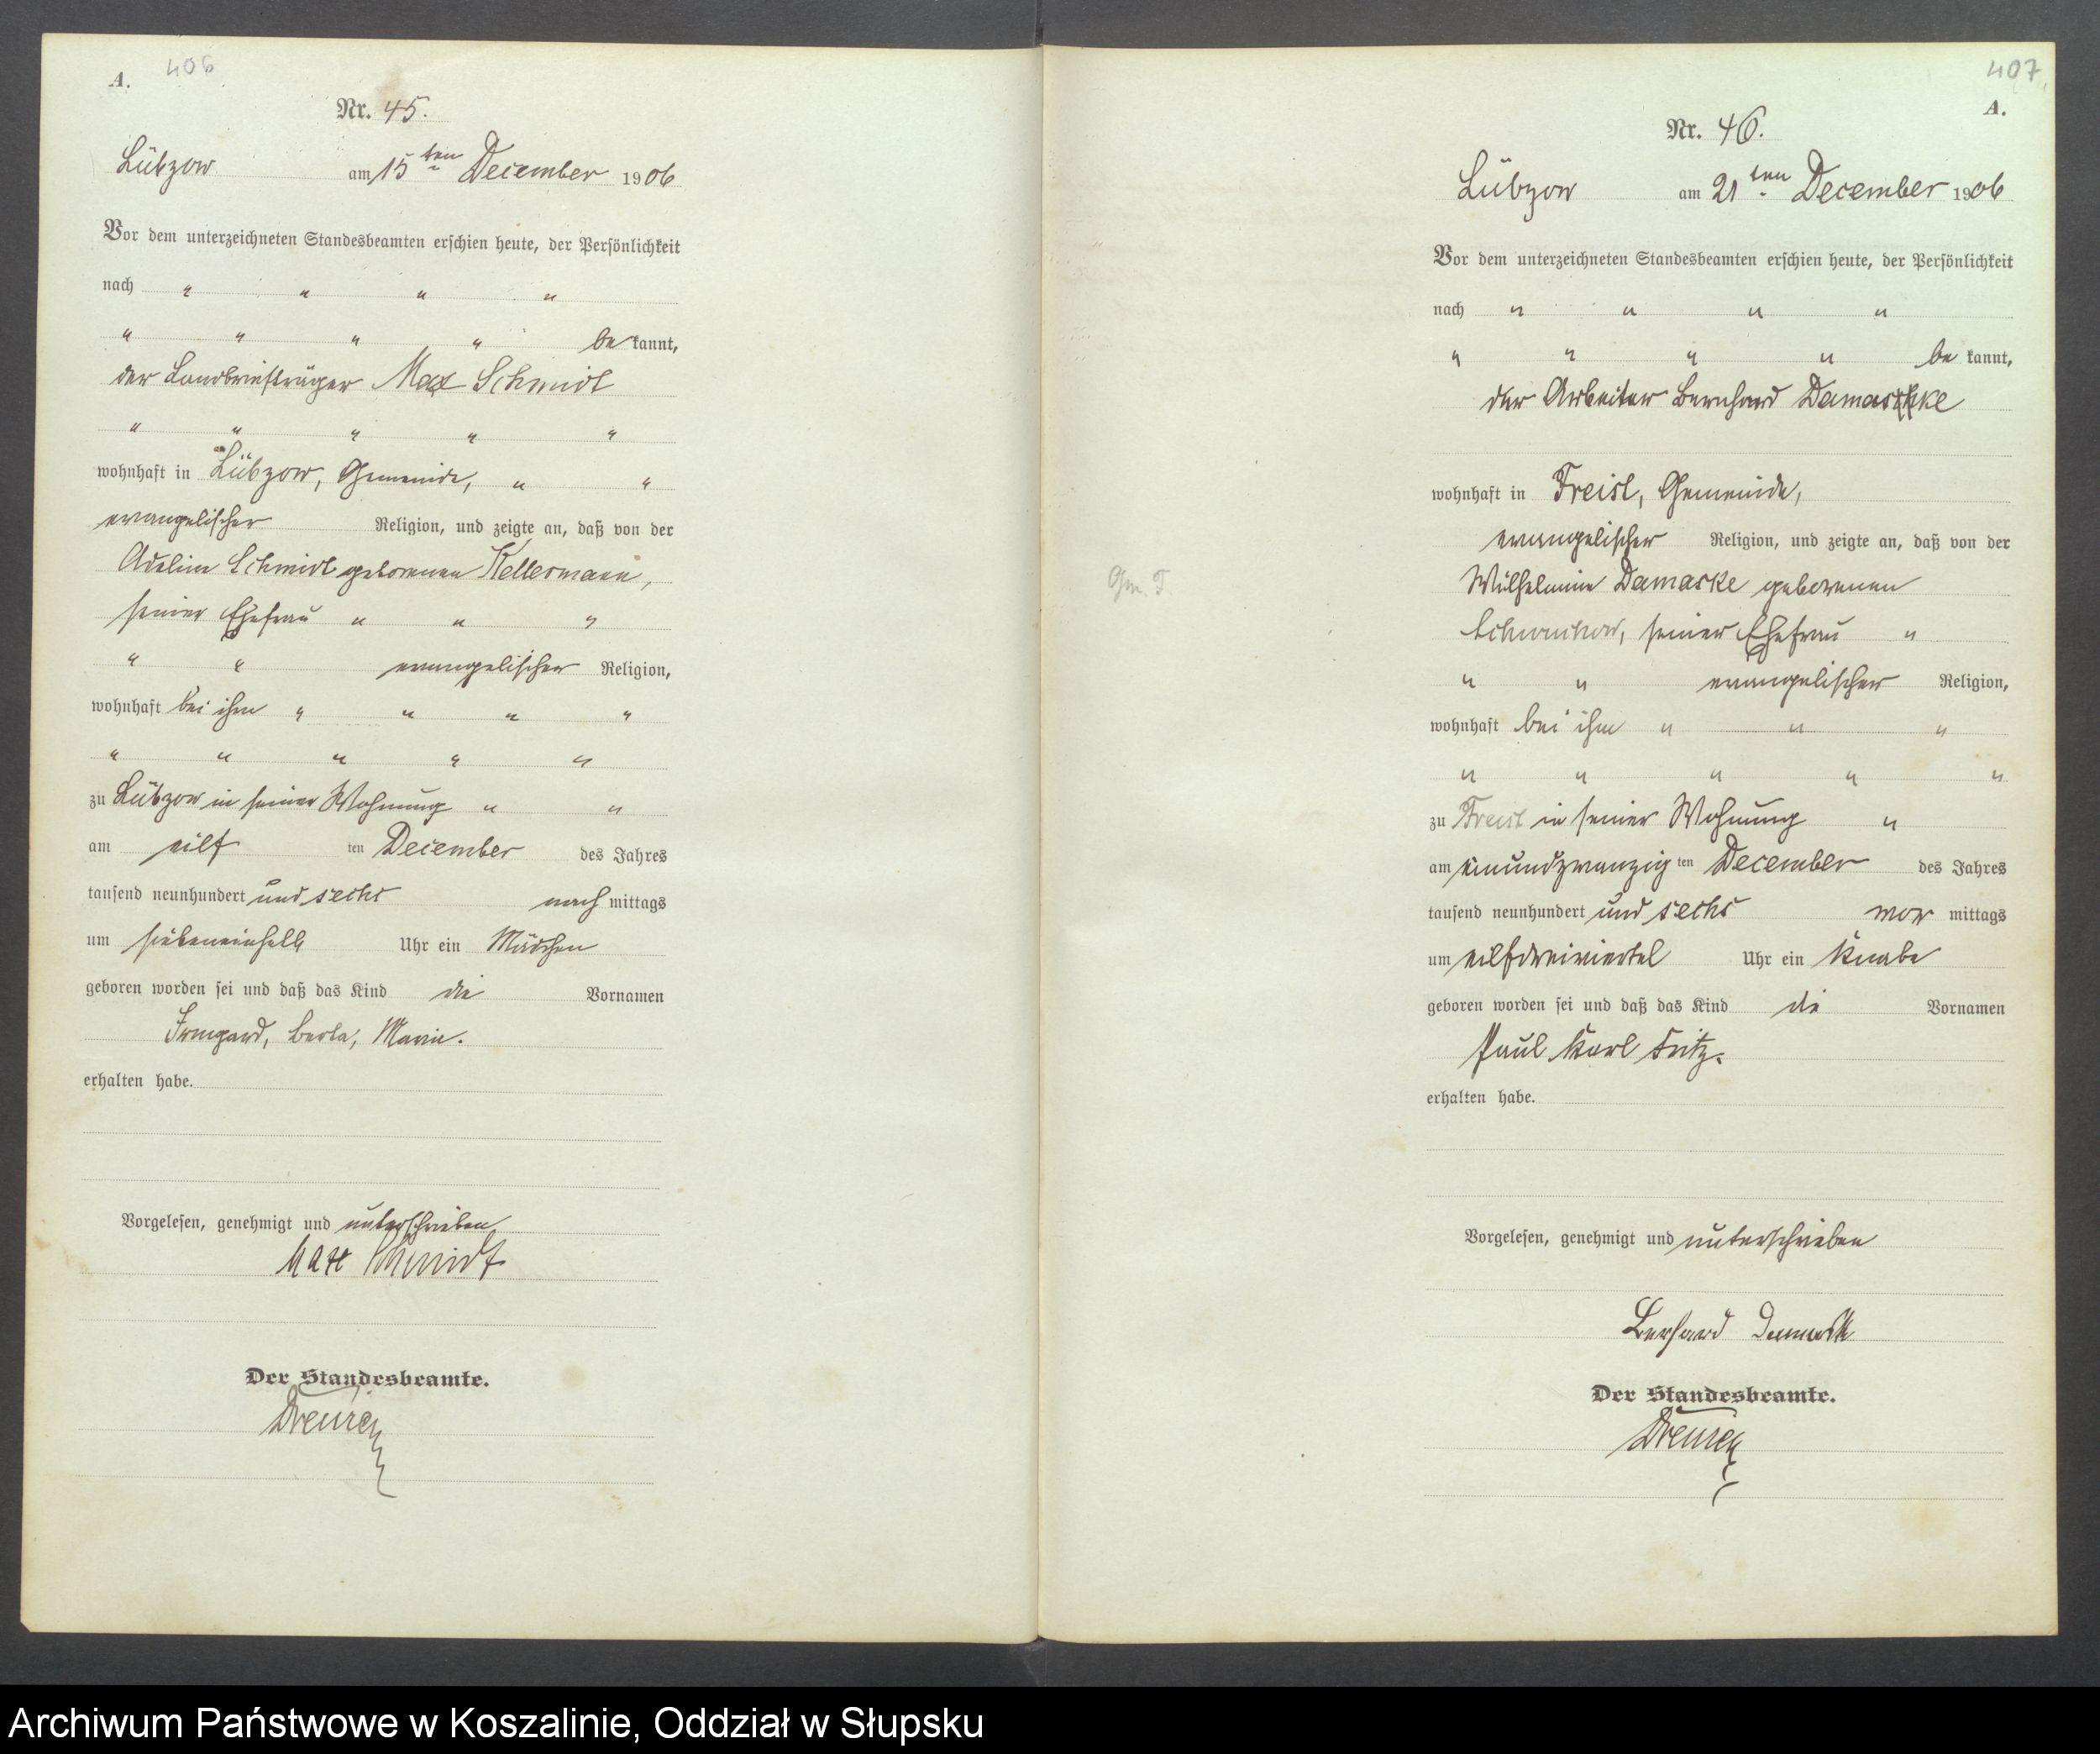 A.
406
Nr. 45.
Lübzow am 15ten December 1906
Vor dem unterzeichneten Standesbeamten erschien heute, der Persönlichkeit
nach " " " "
" " " " be kannt,
der Landbriefträger Max Schmidt
" " " " "
wohnhaft in Lübzow, Gemeinde, " "
evangelischer Religion, und zeigte an, daß von der
Adeline Schmidt geborenen Kellermann,
seiner Ehefrau " " "
" " evangelischer Religion,
wohnhaft bei ihm " " " "
" " " " "
zu Lübzow in seiner Wohnung " "
am eilf ten December des Jahres
tausend neunhundert und sechs nach mittags
um siebeneinhalb Uhr ein Mädchen
geboren worden sei und daß das Kind die Vornamen
Irmgard, Berta, Marie.
erhalten habe.
Vorgelesen, genehmigt und unterschrieben
Max Schmidt
Der Standesbeamte.
407
A.
Nr. 46.
Lübzow am 21ten December 1906
Vor dem unterzeichneten Standesbeamten erschien heute, der Persönlichkeit
nach " " " "
" " " " be kannt,
der Arbeiter Bernhard Damaske
wohnhaft in Freist, Gemeinde,
evangelischer Religion, und zeigte an, daß von der
Wilhelmine Damaske geborenen
seiner Ehefrau "
" " evangelischer Religion,
wohnhaft bei ihm " " "
" " " " "
zu Freist in seiner Wohnung "
am einundzwanzig ten December des Jahres
tausend neunhundert und sechs vor mittags
um eilfdreiviertel Uhr ein Knabe
geboren worden sei und daß das Kind die Vornamen
Paul Karl Fritz.
erhalten habe.
Vorgelesen, genehmigt und unterschrieben
Der Standesbeamte.
Archiwum Państwowe w Koszalinie, Oddział w Słupsku